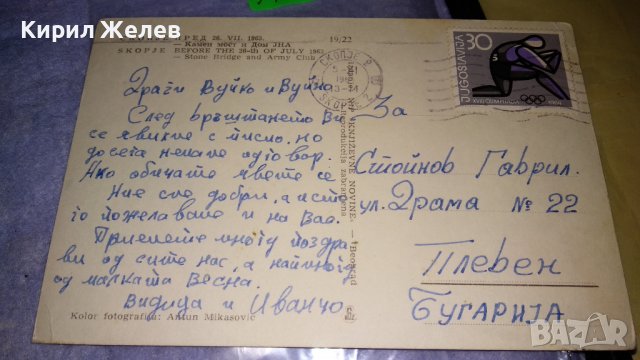 Кирил Желев
РЕД 26. VII. 1963.
— Камен мост и Дом ЈНА
19,22
SKOPJE BEFORE THE 26-th OF JULY 1963
— Stone Bridge and Army Club
Драги Вујко и Вујна
След връштането Ви
се явивме с писмо, но
досега немаме одговор.
Ако обичате явете се
Ние сме добри, а исто
го пожелаваме и на Вас.
Примете много поздра
ви од сите нас, а најмногу
од малката Весна.
Видица и Иванчо
Kolor fotografija: Antun Mikasović
KNJIŽEVNE NOVINE — Beograd
reprodukcija zabranjena
SKOPJE 2
JUGOSLAVIJA
30
XVIII OLIMPIJADA 1964
За
Стойнов Гаврил.
ул. Драма № 22
Плевен
БУГАРИЈА
bazar.bg